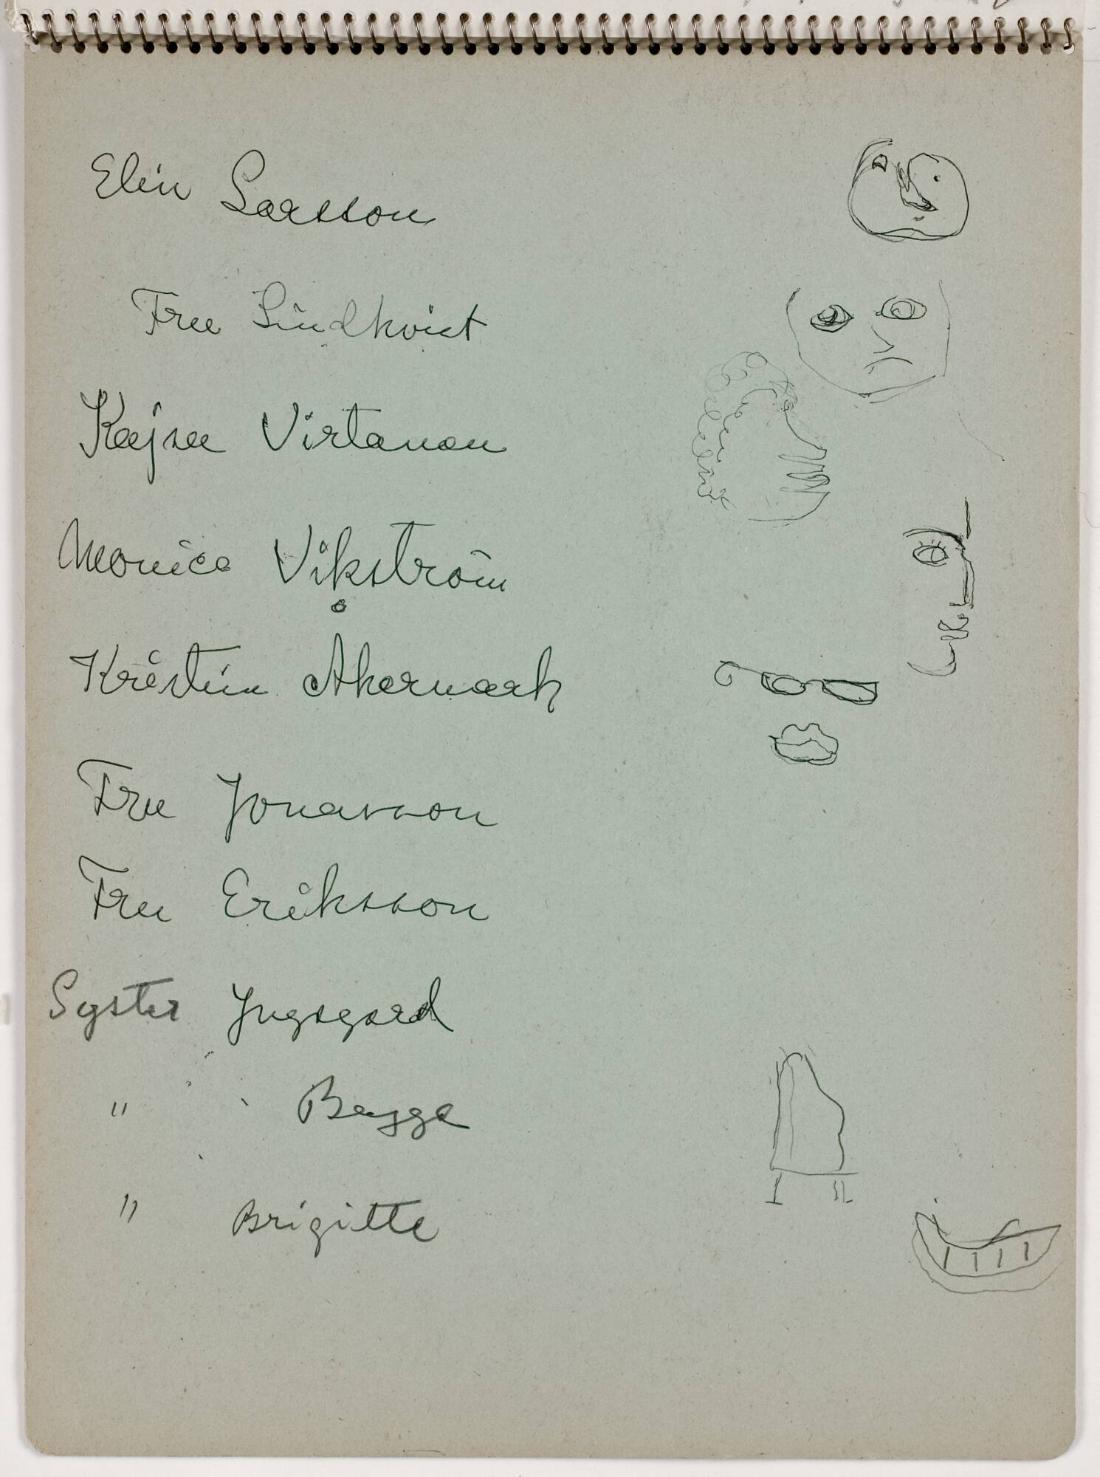 Elin Larsson
Fru Lindkvist
Kajsa Virtanen
Monica Vikström
Kristin Åkermark
Fru Jonasson
Fru Eriksson
Syster Ingegerd
" Bygge
" Brigitte